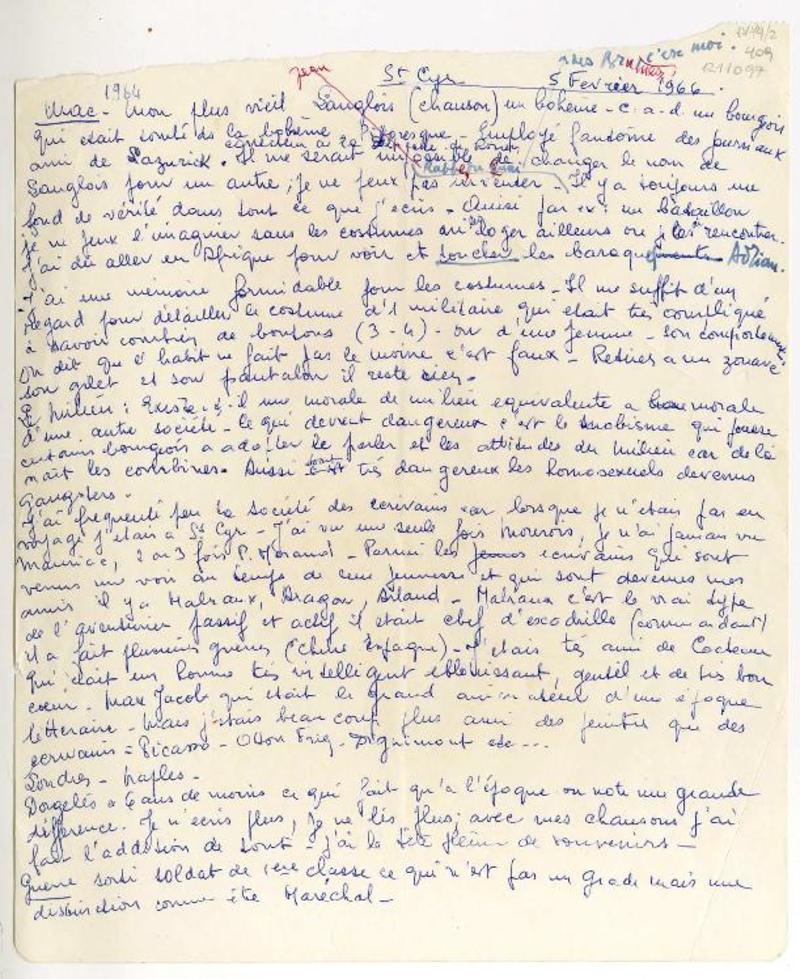 409
121097
c'est moi.
Jean
St Cyr
5 Fevrier 1966.
1964
Mac - Mon plus vieil Langlois (chanson) un bohème - c.a.d. un bourgeois
qui était tombé ds la bohème Employé fantôme des journaux
ami de Lazurick. Il me serait impossible de changer le nom de
Langlois pour un autre ; je ne peux pas inventer - Il y a toujours un
fond de vérité dans tout ce que j'ecris - Ainsi par ex : un bataillon
je ne peux l'imaginer sans les costumes ni loger ailleurs ou je les rencontrer.
J'ai dû aller en Afrique pour voir et toucher les baraquements Adrian.
- J'ai une mémoire formidable pour les costumes - Il me suffit d'un
regard pour détailler le costume d'1 militaire qui etait très compliqué
à savoir combien de boutons (3-4) - ou d'une femme - son comportement.
On dit que l'habit ne fait pas le moine c'est faux - Retirez a un zouave
son gilet et son pantalon il reste rien -
Le Milieu : Existe-t-il une morale de milieu equivalente a la morale
d'une autre société - ce qui devient dangereux c'est le snobisme qui pousse
certains bourgeois a adopter le parler et les attitudes du Milieu car de là
nait les combines. Aussi sont très dangereux les homosexuels devenus
Gangsters.
J'ai fréquenté peu la Société des ecrivains car lorsque je n'etais pas en
voyage j'etais a St Cyr - J'ai vu une seule fois Maurois, je n'ai jamais vu
Mauriac, 2 ou 3 fois P. Morand - Parmi les ecrivains qui sont
venus me voir au temps de leur jeunesse et qui sont devenus mes
amis il y a Malraux, Aragon, Arland - Malraux c'est le vrai type
de l'aventurier passif et actif il etait chef d'escadrille (commandant)
il a fait plusieurs guerres (Chine Espagne) - J'etais très ami de Cocteau
qui était un homme très intelligent eblouissant, gentil et de très bon
cœur - Max Jacob qui etait le grand animateur d'une epoque
littéraire - Mais j'etais beaucoup plus ami des peintres que des
ecrivains = Picasso - Othon Friez - Dignimont etc...
Londres - Naples -
Dorgelès a 6 ans de moins ce qui fait qu'a l'époque on note une grande
différence. Je n'ecris plus, je ne lis plus ; avec mes chansons j'ai
fait l'addition de tout - j'ai la tête pleine de souvenirs -
Guerre sorti soldat de 1ere classe ce qui n'est pas un grade mais une
distinction comme être Maréchal -